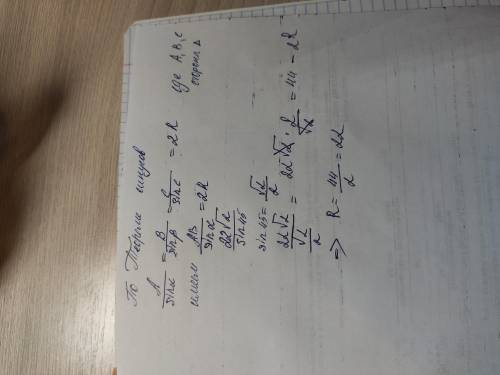 По Теореме синусов
A/sin α = B/sin β = C/sin c = 2R где A, B, C
стороны Δ
имеем AB/sin α = 2R
22√2/sin 45
sin 45 = √2/2
22√2/(√2/2) = 22√2 · 2/√2 = 44 = 2R
=> R = 44/2 = 22